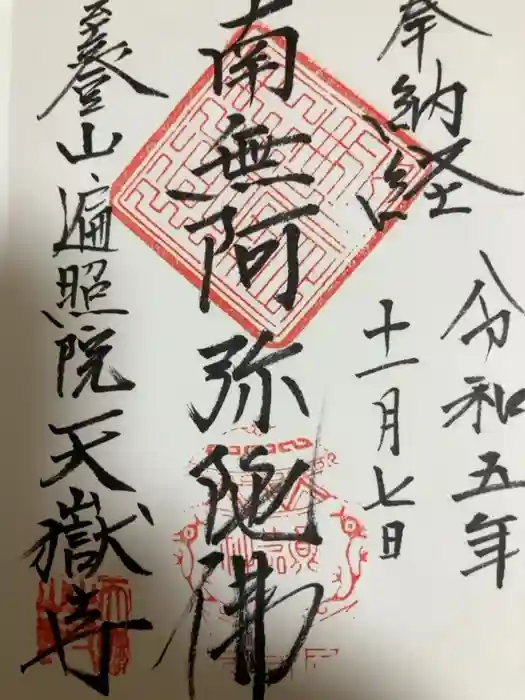 奉納経
令和五年
十一月七日
南無阿弥陀佛
臺山遍照院天嶽寺